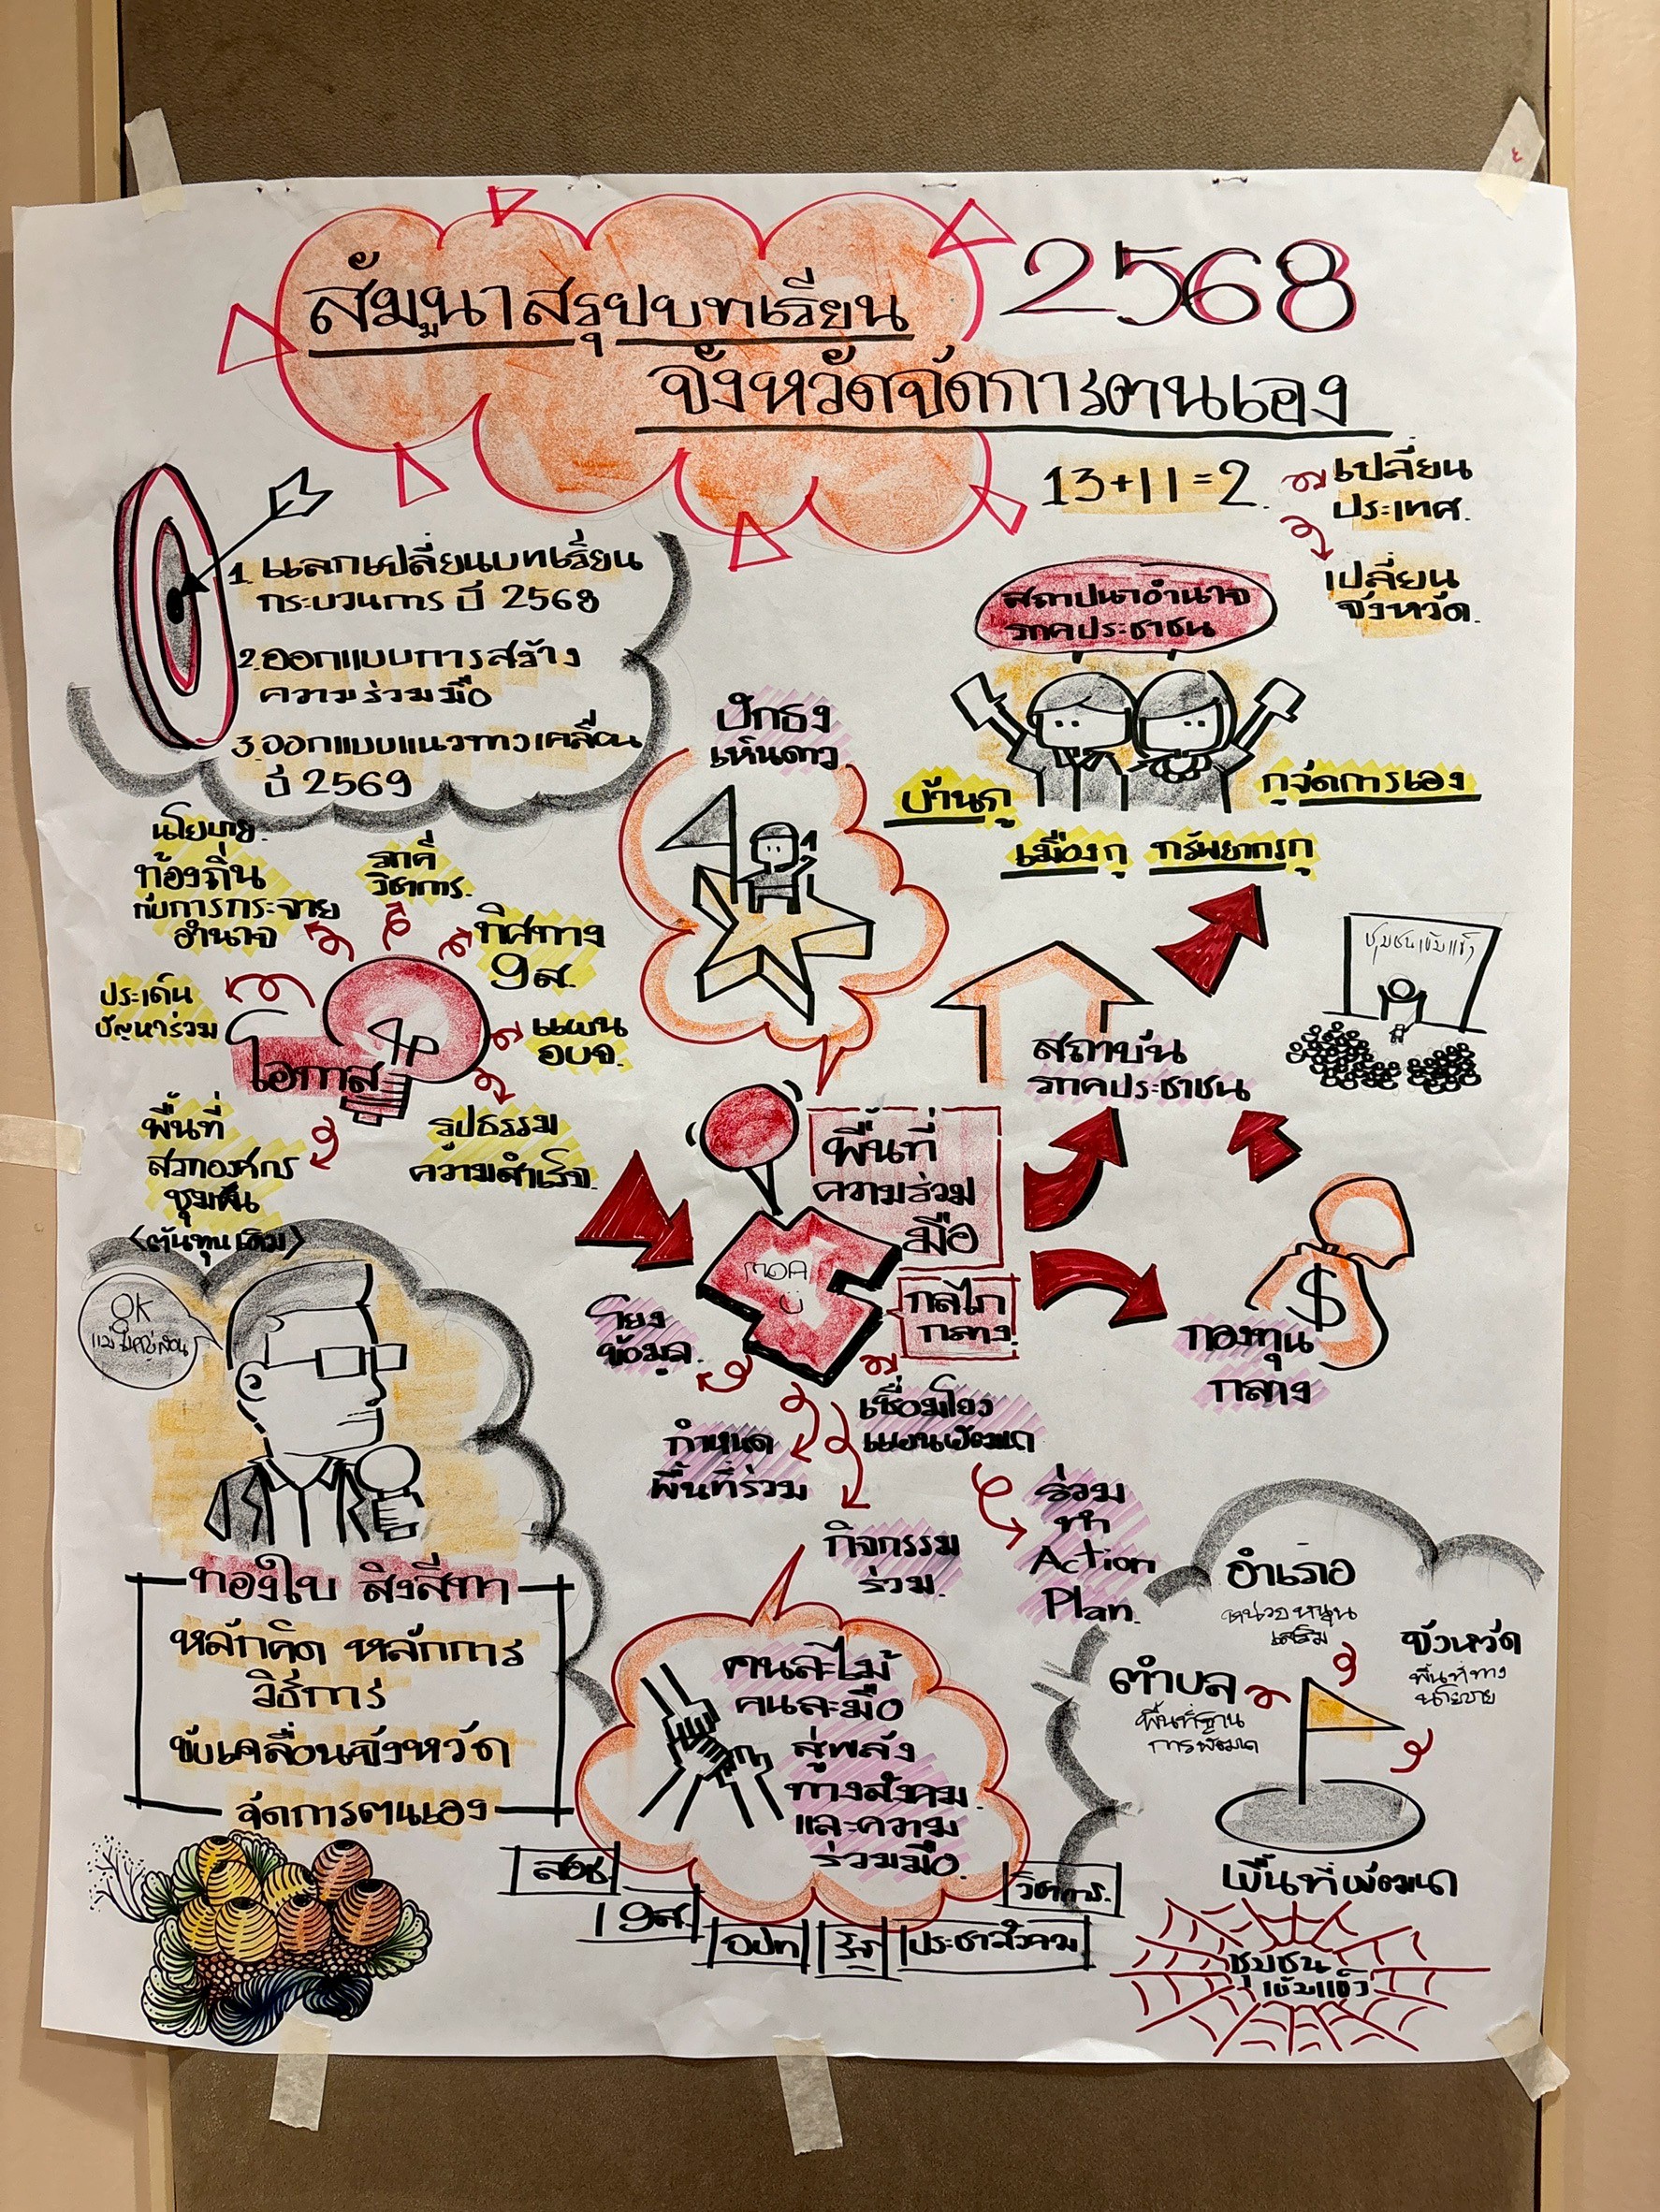 สัมมนาสรุปบทเรียน
2568
จังหวัดจัดการตนเอง
13+11=2
เปลี่ยน
ประเทศ
เปลี่ยน
จังหวัด
1. แลกเปลี่ยนบทเรียน
กระบวนการ ปี 2568
2. ออกแบบการสร้าง
ความร่วมมือ
3. ออกแบบแนวทางเคลื่อน
ปี 2569
สถาปนาอำนาจ
ภาคประชาชน
บ้านกู
กูจัดการเอง
เมืองกู ทรัพยากรกู
ปักธง
เห็นดาว
นโยบาย
ท้องถิ่น
กับการกระจาย
อำนาจ
ภาคี
วิชาการ
ทิศทาง
9ส.
แผน
อบจ.
ประเด็น
ปัญหาร่วม
โอกาส
พื้นที่
สภาองค์กร
ชุมชน
<ต้นทุนเดิม>
รูปธรรม
ความสำเร็จ
ชุมชนเข้มแข็ง
สถาบัน
ภาคประชาชน
พื้นที่
ความร่วม
มือ
MOA
กลไก
กลาง
กองทุน
กลาง
$
โยง
ข้อมูล
กำหนด
พื้นที่ร่วม
เชื่อมโยง
แผนพัฒนา
กิจกรรม
ร่วม
ร่วม
ทำ
Action
Plan
OK
ทองใบ สิงสีทา
หลักคิด หลักการ
วิธีการ
ขับเคลื่อนจังหวัด
จัดการตนเอง
คนละไม้
คนละมือ
สู่พลัง
ทางสังคม
และความ
ร่วมมือ
สอช
19ส.
อปท
รัฐ
ประชาสังคม
วิชาการ
อำเภอ
หน่วยหนุน
เสริม
จังหวัด
พื้นที่ทาง
นโยบาย
ตำบล
พื้นที่ฐาน
การพัฒนา
พื้นที่พัฒนา
ชุมชน
เข้มแข็ง